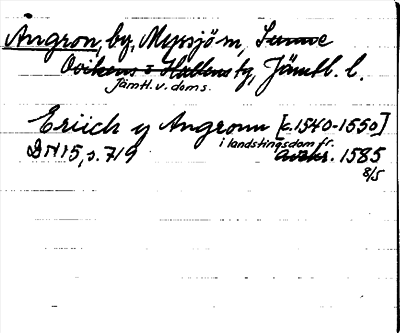 Ångron, by, Myssjö sn, Sunne
Ovikens o Hallens tg, Jämtl. l.
Jämtl. v. doms.
Eriich y Angronn [c.1540-1550]
i landstingsdom fr.
DN 15, s. 719 Avskr. 1585
8/5